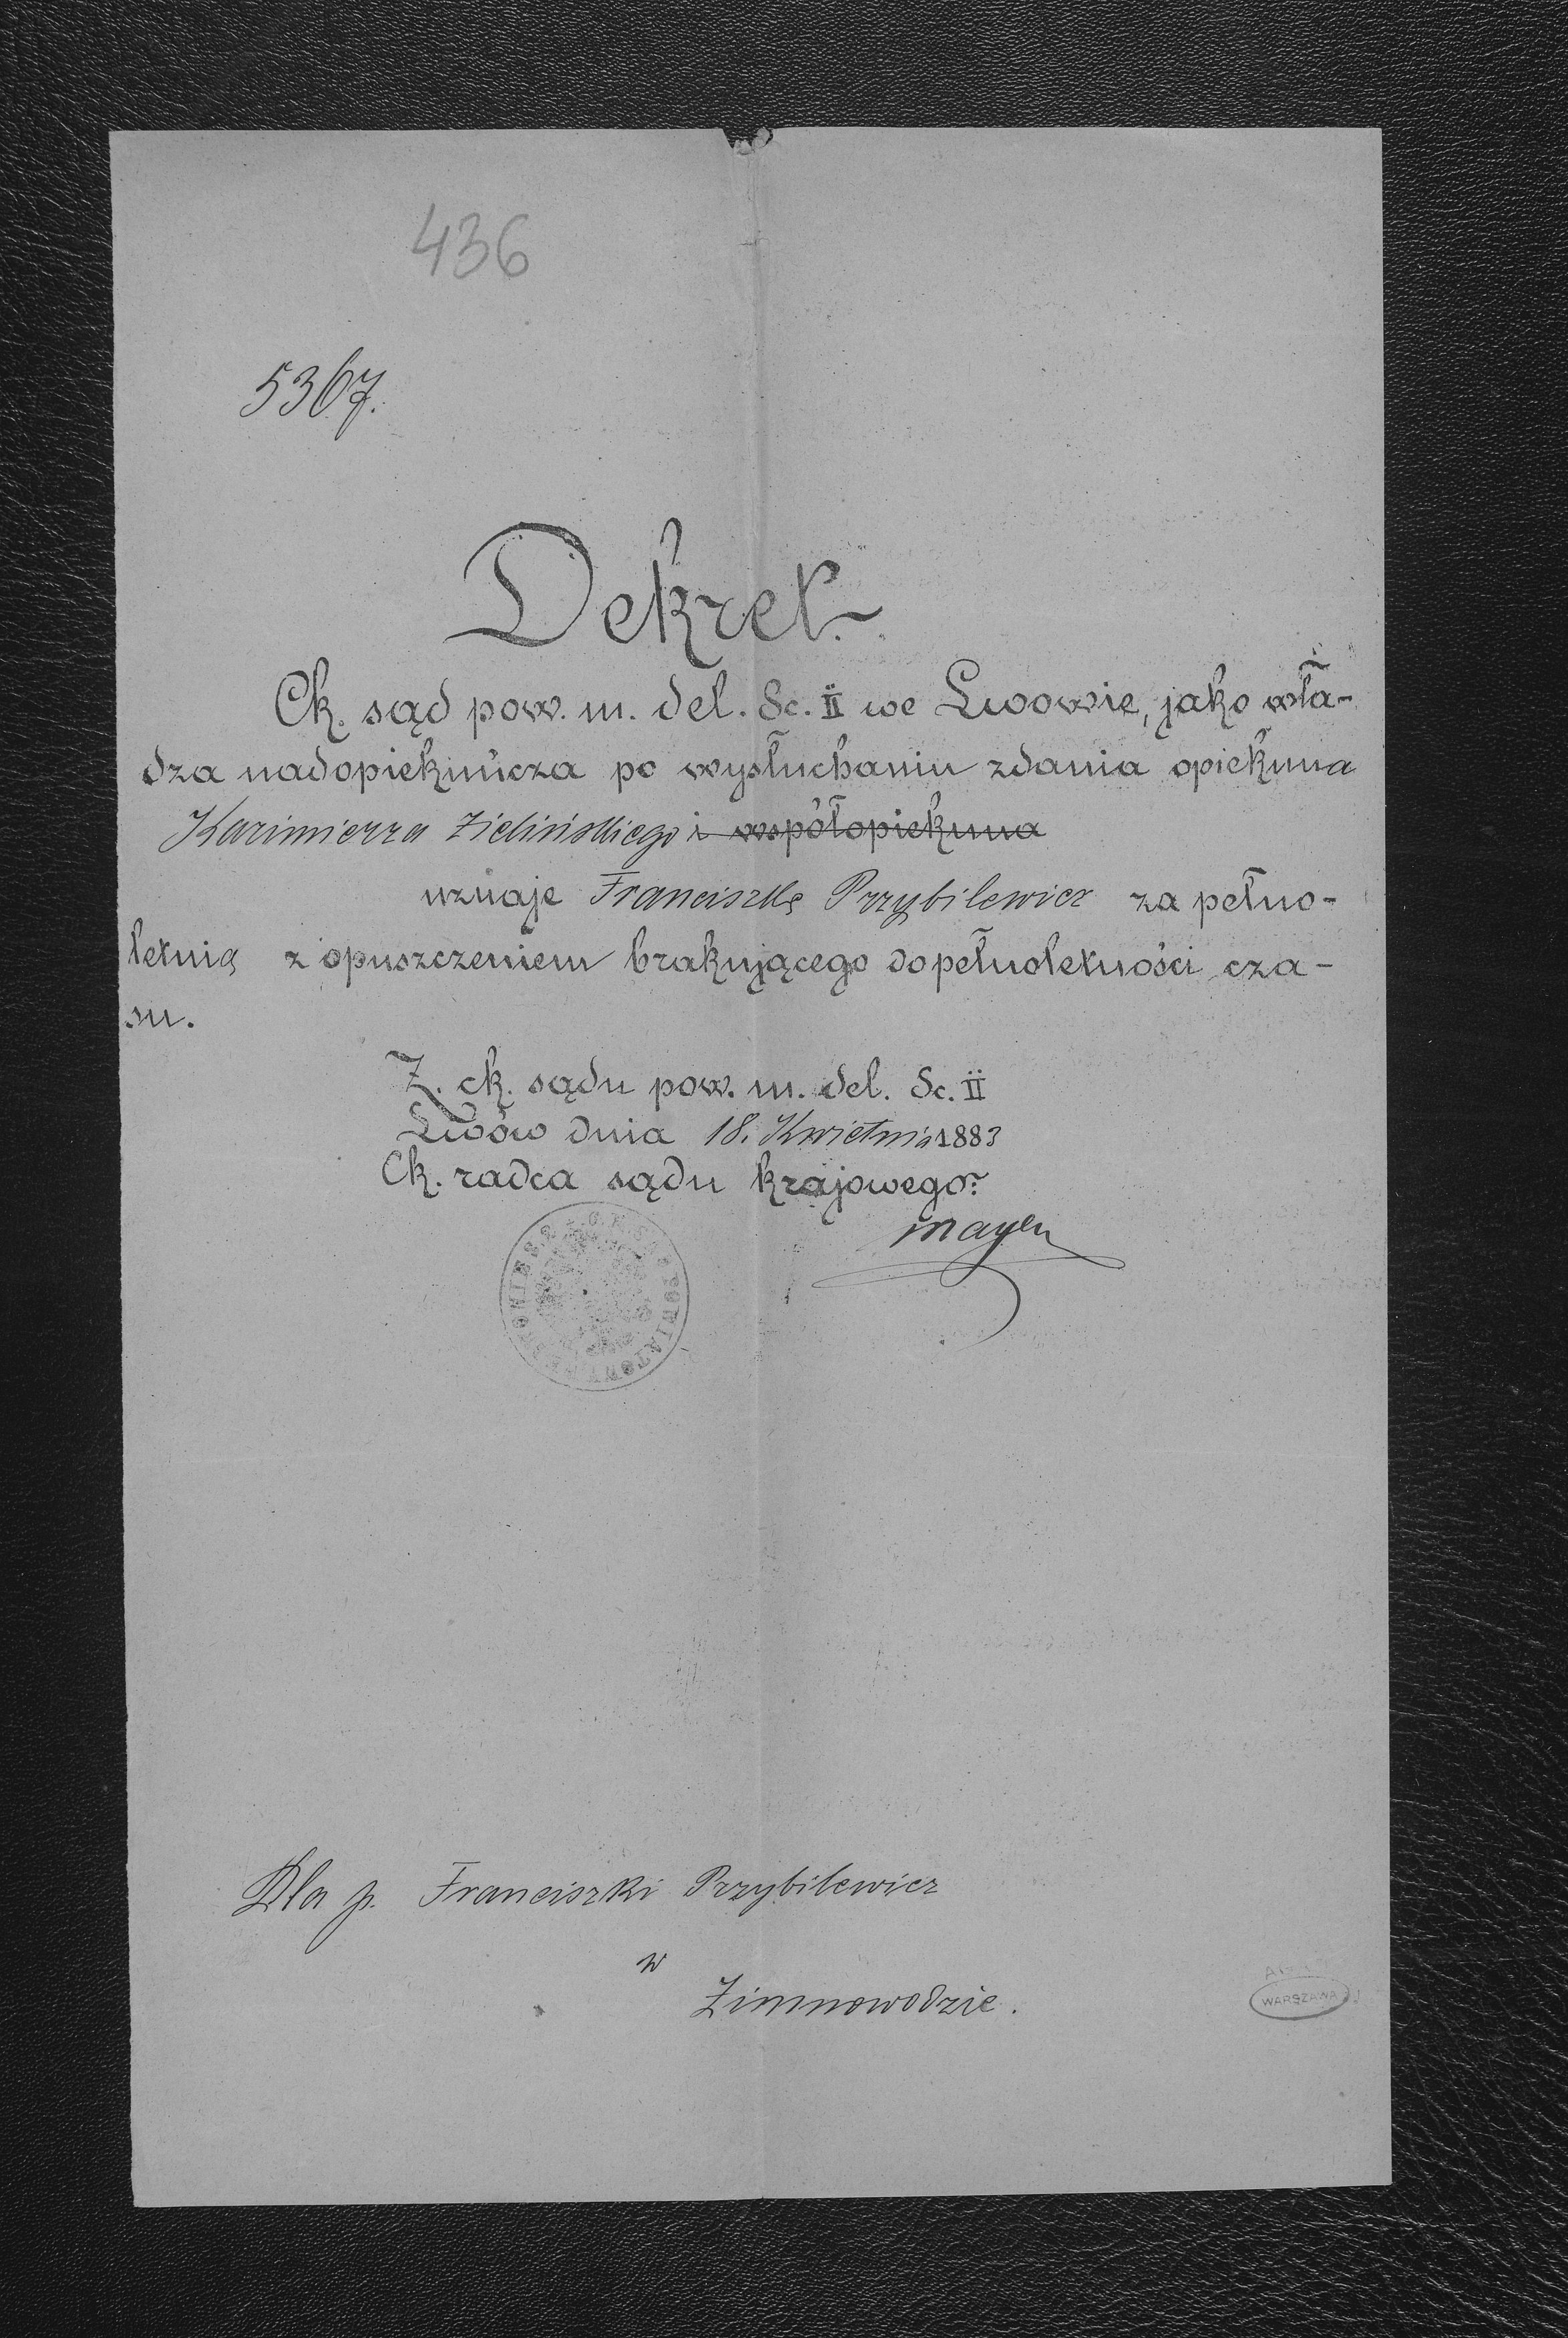 436
5367.
Dekret.
Ck. sąd pow. m. del. Sc. II we Lwowie, jako wła-
dza nadopiekuńcza po wysłuchaniu zdania opiekuna
Kazimierza Zielińskiego i współopiekuna
uznaje Franciszkę Przybilewicz za pełno-
letnią z opuszczeniem brakującego do pełnoletności cza-
su.
Z. ck. sądu pow. m. del. Sc. II
Lwów dnia 18. Kwietnia 1883
Ck. radca sądu krajowego:
Mayer
Dla p. Franciszki Przybilewicz
w
Zimnowodzie.
WARSZAWA